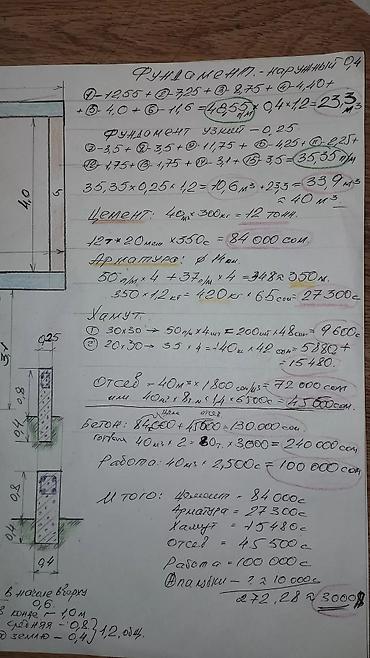 Фундамент. - наружный 0,4
①-12,55 + ②-7,25 + ③-8,75 + ④-4,40+
+⑤ 4,0 + ⑥-11,6 = 48,55 п/м × 0,4×1,2 = 23,3 м³
Фундамент узкий - 0,25.
⑩-1,75 + ⑬-1,75 + ⑭-3,1 + ⑮-3,5 = 35,35 п/м
35,35×0,25×1,2 = 10,6 м³ + 23,3 = 33,9 м³
≈ 40 м³
Цемент: 40м³ × 300кг = 12 тонн.
12т × 20меш × 350с = 84 000 сом.
Арматура: ∅ 14мм.
50 п/м × 4 + 37 п/м × 4 = 348 ≈ 350м.
350 × 1,2 кг = 420кг × 65сом = 27 300с
Хамут.
① 30×30 → 50п/м × 4шт = 200шт × 48сом = 9 600с
② 20×30 → 35 × 4 = 140 × 42 сом = 5880 +
= 15480.
Отсев - 40м³ × 1800 сом/м³ = 72 000 сом
= 45 500сом
Бетон: = 130.000сом
40м³ × 2 = 80т. × 3,000 = 240 000 сом
Работа: 40м³ × 2,500с = 100 000 сом
Итого: цемент = 84 000с
Арматура = 27 300с
Хамут = 15480с
Отсев = 45 500с
Работа = 100 000с
Опалубки - ? ≈ 10 000с
272,28 ≈ 3000$
4,0
0,25
0,8
0,4
0,8
0,4
0,4
в начале сверху
0,6.
в конце - 1,0м
средняя - 0,8
землю - 0,4 } 1,2 общ.